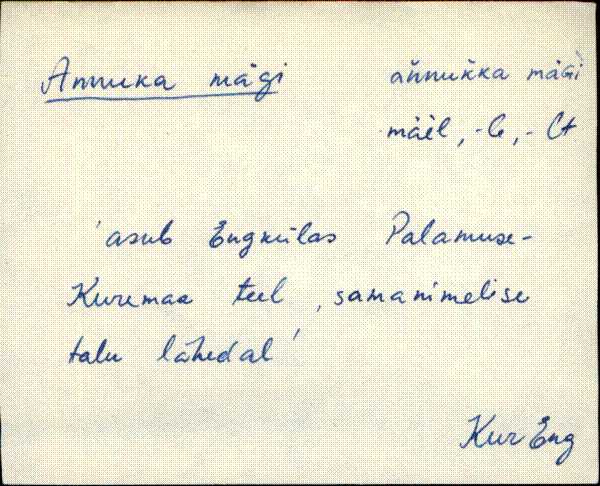 Annuka mägi
ańnukka mäGi
mäèl, -le, -lt
'asub Engkülas Palamuse-
Kuremaa teel, samanimelise
talu lähedal'
Kur Eng